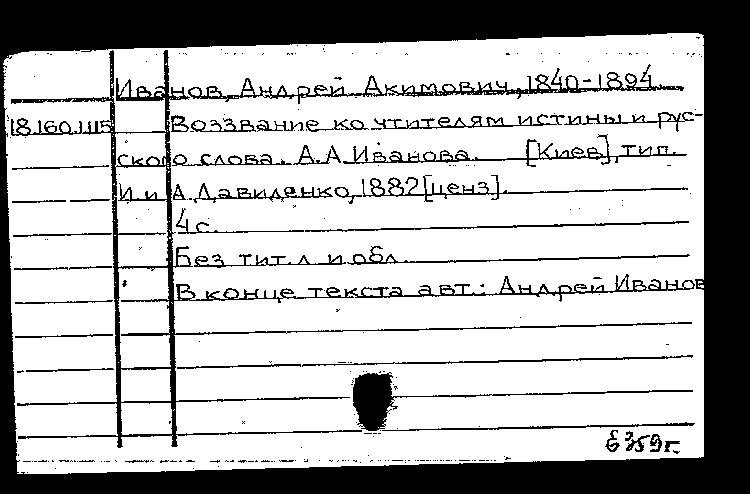 Иванов, Андрей Акимович, 1840-1894
18.160.1.115 Воззвание ко чтителям истины и рус-
ского слова. А.А.Иванова. [Киев], тип.
И и А.Давиденко, 1882[ценз].
4 с.
Без тит.л и обл.
В конце текста авт.: Андрей Иванов
Е 359г.